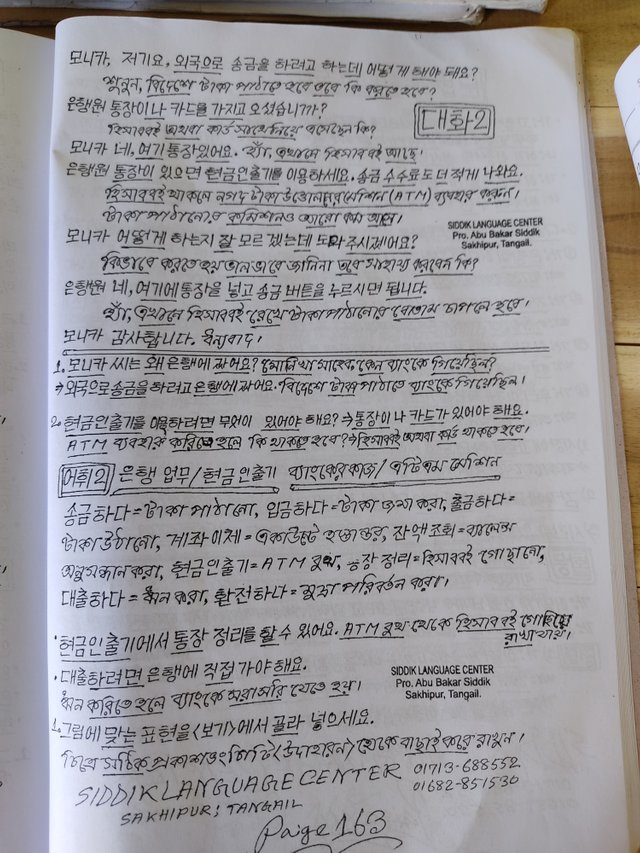 모니카, 저기요, 외국으로 송금을 하려고 하는데 어떻게 해야 돼요?
শুনুন, বিদেশে টাকা পাঠাতে হবে তবে কি করতে হবে?
은행원 통장이나 카드를 가지고 오셨습니까?
হিসাববই অথবা কার্ড সাথে নিয়ে এসেছেন কি?
대화2
모니카 네, 여기 통장 있어요. হ্যাঁ, এখানে হিসাববই আছে।
은행원 통장이 있으면 현금인출기를 이용하세요. 송금 수수료도 더 적게 나와요.
হিসাববই থাকলে নগদ টাকা উত্তোলনের মেশিন (ATM) ব্যবহার করুন।
টাকা পাঠানোর কমিশনও আরো কম আসে।
모니카 어떻게 하는지 잘 모르겠는데 도와주시겠어요?
কিভাবে করতে হয় ভালভাবে জানিনা তবে সাহায্য করবেন কি?
SIDDIK LANGUAGE CENTER
Pro. Abu Bakar Siddik
Sakhipur, Tangail.
은행원 네, 여기에 통장을 넣고 송금 버튼을 누르시면 됩니다.
হ্যাঁ, এখানে হিসাববই রেখে টাকা পাঠানোর বোতাম চাপলে হবে।
모니카 감사합니다. ধন্যবাদ।
1. 모니카 씨는 왜 은행에 갔어요? মোনিখা সাহেব কেন ব্যাংকে গিয়েছিল?
⇒ 외국으로 송금을 하려고 은행에 갔어요. বিদেশে টাকা পাঠাতে ব্যাংকে গিয়েছিল।
2. 현금인출기를 이용하려면 무엇이 있어야 해요? → 통장이나 카드가 있어야 해요.
ATM ব্যবহার করিতে হলে কি থাকতে হবে? → হিসাববই অথবা কার্ড থাকতে হবে।
어휘2 은행 업무/현금인출기 ব্যাংকের কাজ/এটিএম মেশিন
송금하다 = টাকা পাঠানো, 입금하다 = টাকা জমা করা, 출금하다 =
টাকা উঠানো, 계좌 이체 = একাউন্টে হস্তান্তর, 잔액 조회 = ব্যালেন্স
অনুসন্ধান করা, 현금인출기 = ATM বুথ, 통장 정리 = হিসাববই গোছানো,
대출하다 = ঋন করা, 환전하다 = মুদ্রা পরিবর্তন করা।
• 현금인출기에서 통장 정리를 할 수 있어요. ATM বুথ থেকে হিসাববই গোছিয়ে রাখা যায়।
• 대출하려면 은행에 직접 가야 해요.
ঋন করিতে হলে ব্যাংকে সরাসরি যেতে হয়।
SIDDIK LANGUAGE CENTER
Pro. Abu Bakar Siddik
Sakhipur, Tangail.
1. 그림에 맞는 표현을 <보기>에서 골라 넣으세요.
চিত্রে সঠিক প্রকাশভংগিটি <উদাহারন> থেকে বাছাই করে রাখুন।
SIDDIK LANGUAGE CENTER 01713-688552
SAKHIPUR; TANGAIL 01682-851530
Paige 163